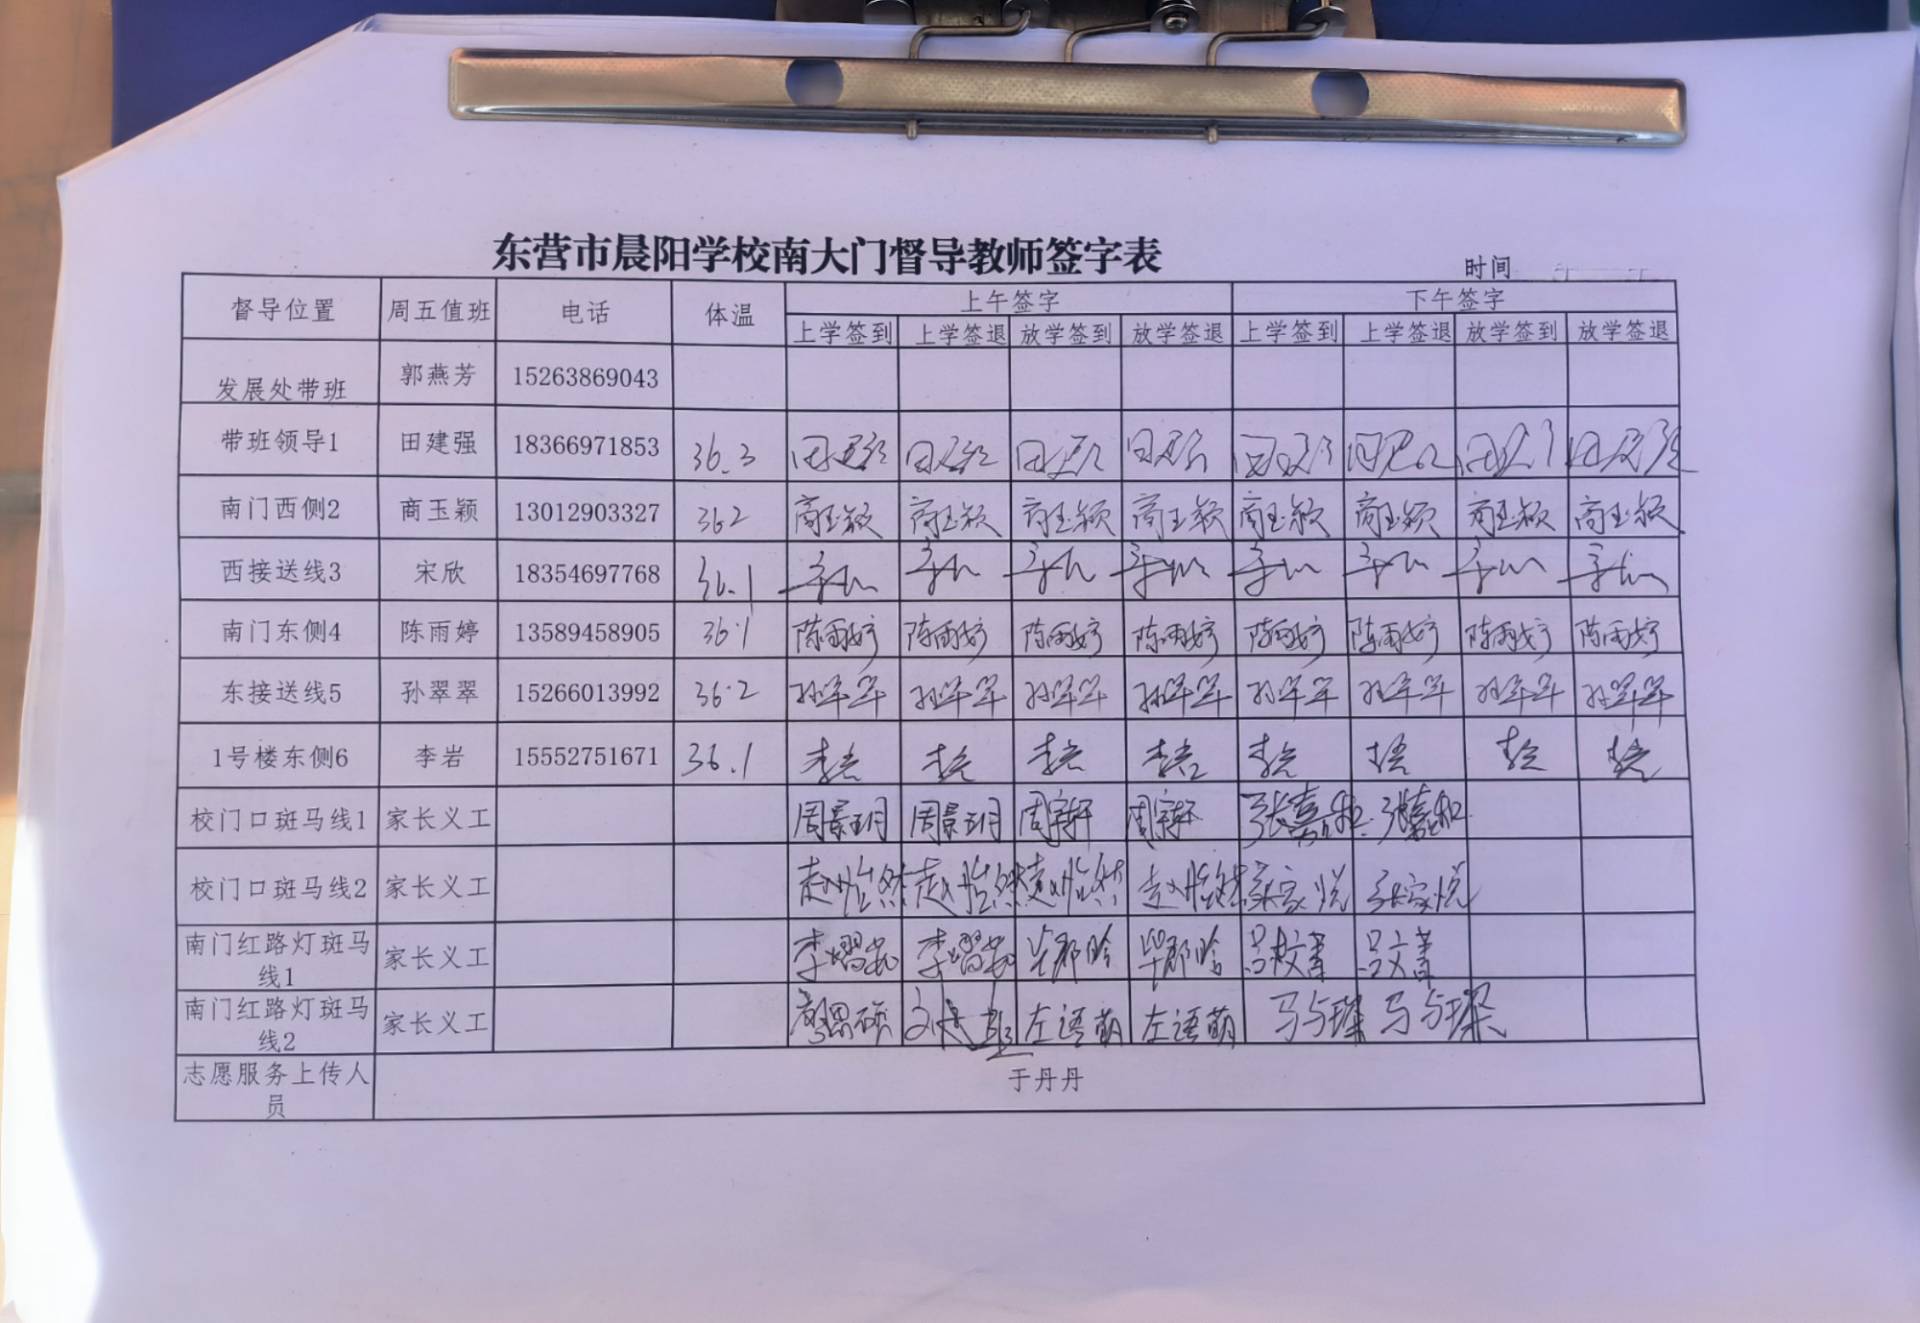 东营市晨阳学校南大门督导教师签字表
时间
督导位置 周五值班 电话 体温 上午签字 下午签字
上学签到 上学签退 放学签到 放学签退 上学签到 上学签退 放学签到 放学签退
发展处带班 郭燕芳 15263869043
带班领导1 田建强 18366971853 36.3
南门西侧2 商玉颖 13012903327 36.2 商玉颖 商玉颖 商玉颖 商玉颖 商玉颖 商玉颖 商玉颖 商玉颖
西接送线3 宋欣 18354697768 36.1
南门东侧4 陈雨婷 13589458905 36.1 陈雨婷 陈雨婷 陈雨婷 陈雨婷 陈雨婷 陈雨婷 陈雨婷 陈雨婷
东接送线5 孙翠翠 15266013992 36.2 孙翠翠 孙翠翠 孙翠翠 孙翠翠 孙翠翠 孙翠翠 孙翠翠 孙翠翠
1号楼东侧6 李岩 15552751671 36.1 李岩 李岩 李岩 李岩 李岩 李岩 李岩 李岩
校门口斑马线1 家长义工 周景玥 周景玥 周宇轩 周宇轩 张嘉和 张嘉和
校门口斑马线2 家长义工 赵怡然 赵怡然 赵怡然 赵怡然 张家悦 张家悦
南门红路灯斑马
线1
家长义工 吕文菁
南门红路灯斑马
线2
家长义工 左语萌 左语萌 马与琛 马与琛
志愿服务上传人
员
于丹丹